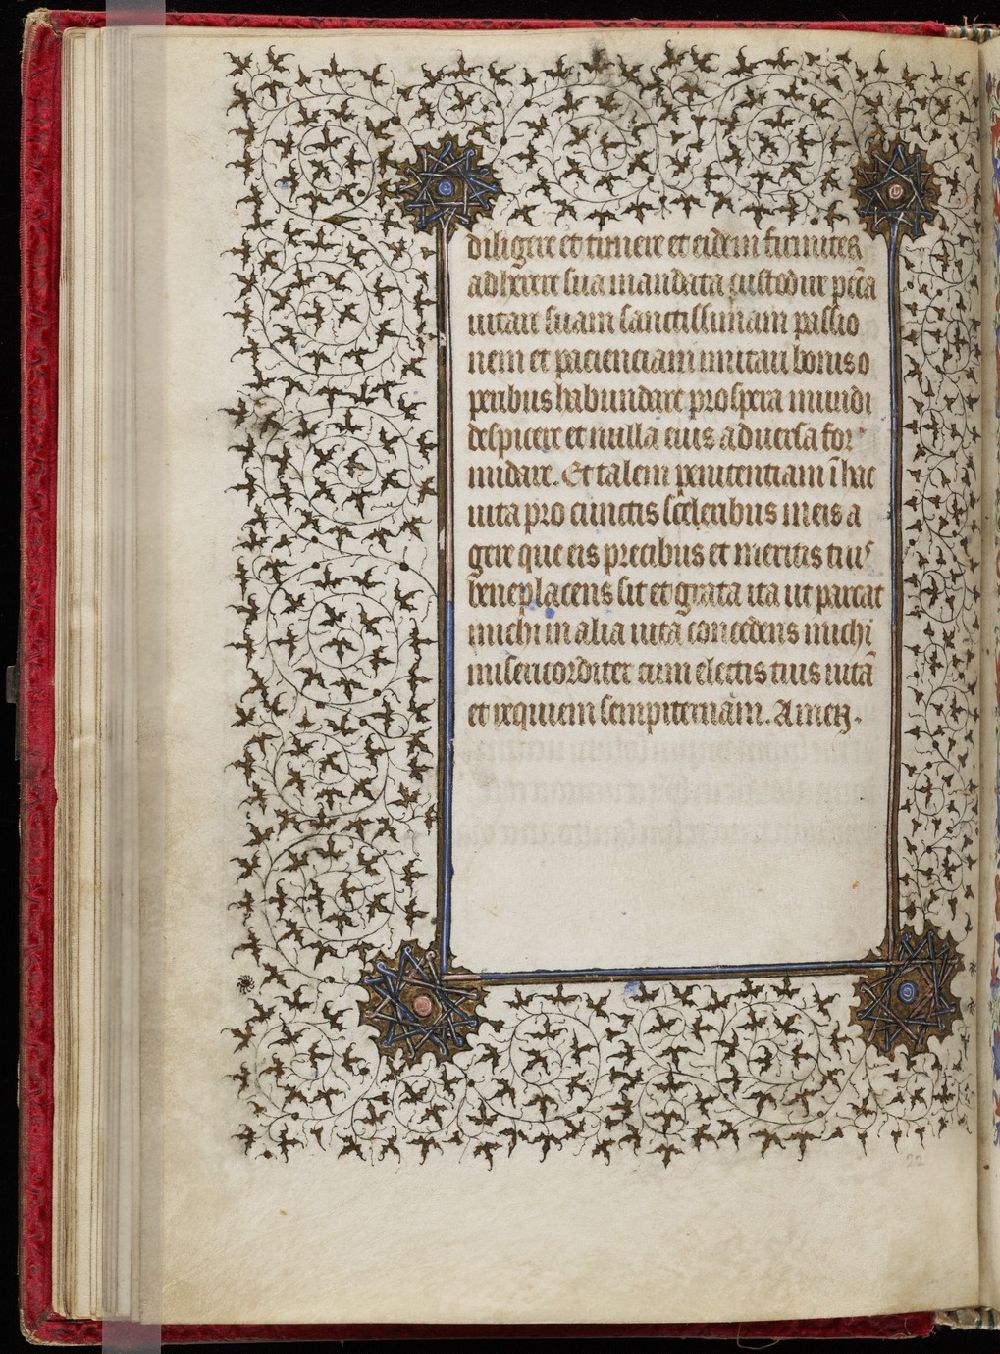 diligere et timere et eidem firmiter
adherere sua mandata custodire pccã
uitare suam sanctissimam passio
nem et pacienciam imitari bonis o
peribus habundare prospera mundi
despicere et nulla eius aduersa for
midare. Et talem penitentiam ĩ hac
uita pro cunctis sceleribus meis a
gere que eis precibus et meritis tuis
beneplacens sit et grata ita ut parcat
michi in alia uita concedens michi
misericorditer cum electis tuis uitã
et requiem sempiternam. Amen.
22